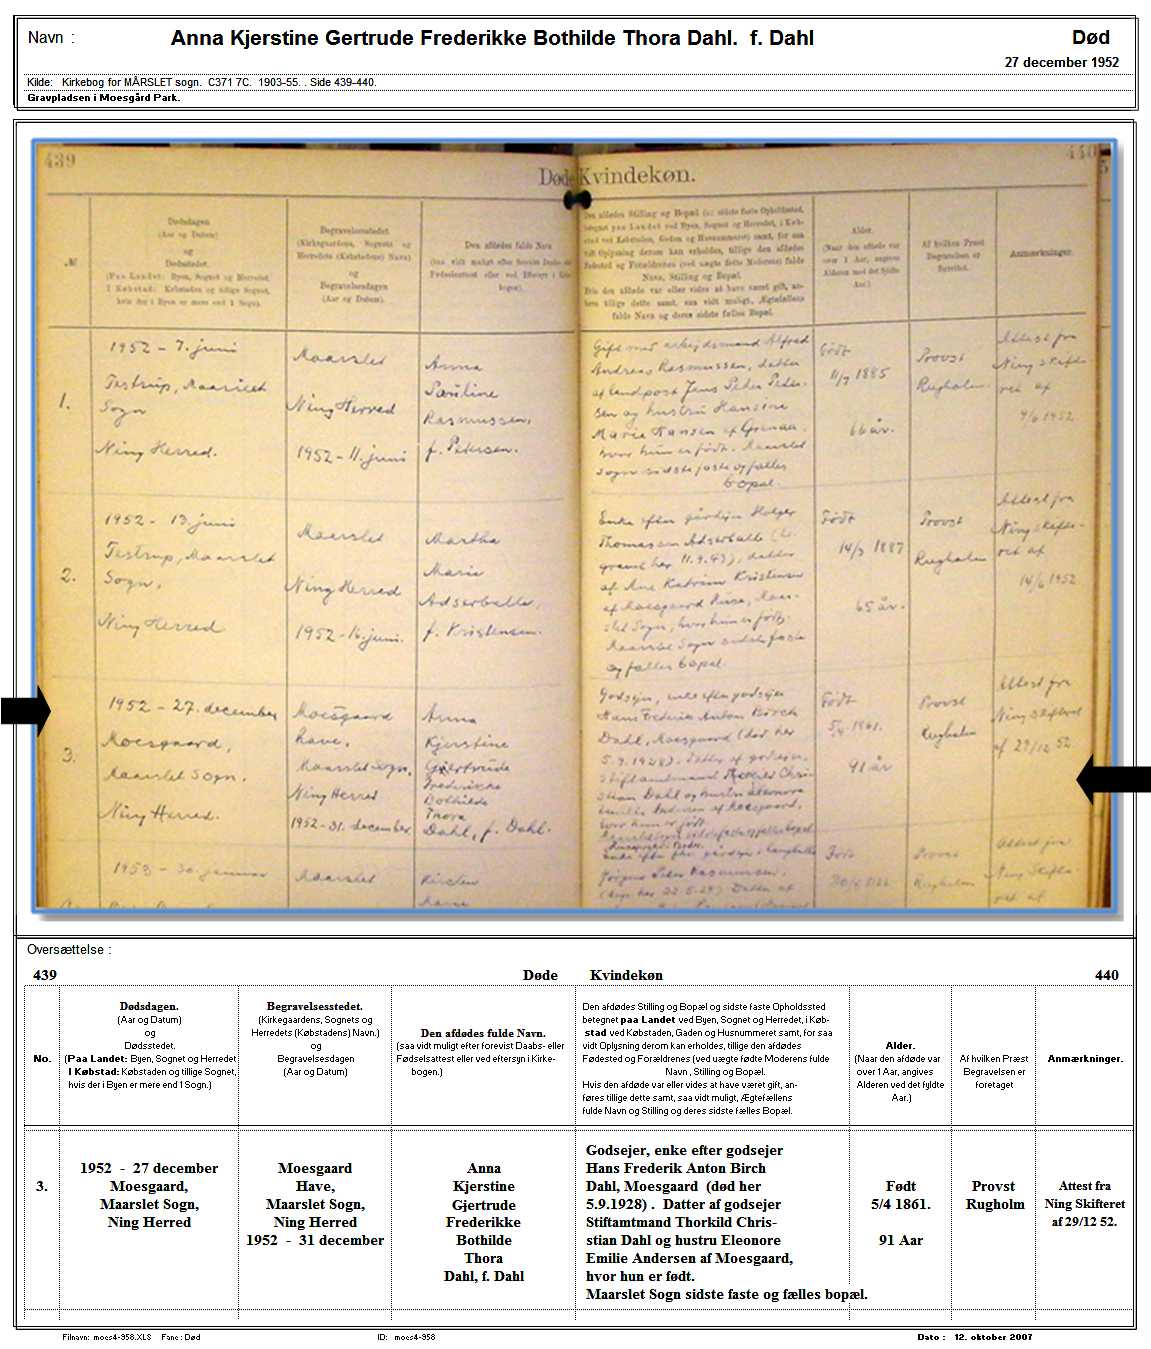 Navn :
Anna Kjerstine Gertrude Frederikke Bothilde Thora Dahl. f. Dahl
Død
27 december 1952
Kilde: Kirkebog for MÅRSLET sogn. C371 7C. 1903-55. . Side 439-440.
Gravpladsen i Moesgård Park.
439
Døde Kvindekøn.
440
Dødsdagen
(Aar og Datum)
og
Dødsstedet.
(Paa Landet: Byen, Sognet og Herredet.
I Købstad: Købstaden og tillige Sognet,
hvis der i Byen er mere end 1 Sogn).
Begravelsesstedet.
(Kirkegaardens, Sognets og
Herredets (Købstadens) Navn)
og
Begravelsesdagen
(Aar og Datum).
Den afdødes fulde Navn
Alder.
(Naar den afdøde var
over 1 Aar, angives
Alderen ved det fyldte
Aar.)
Af hvilken Præst
Begravelsen er
forrettet.
Anmærkninger.
1.
1952 - 7. juni
Testrup, Maarslet
Sogn
Ning Herred.
Maarslet
Ning Herred
1952 - 11. juni
Anna
Pauline
Rasmussen,
f. Petersen.
Gift med arbejdsmand Alfred
Andreas Rasmussen, datter
af landpost Jens Peder Peder-
sen og hustru Hansine
Marie Hansen af Grenaa
hvor hun er født. Maarslet
Sogn sidste faste og fælles
bopæl.
Født
11/7 1885
66 år.
Provst
Rugholm
Attest fra
Ning skifte-
ret af
9/6 1952.
2.
1952 - 13. juni
Testrup, Maarslet
Sogn,
Ning Herred
Maarslet
Ning Herred
1952 - 16. juni.
Martha
Marie
Adserballe,
f. Kristensen.
Enke efter gårdejer Holger
Thomassen Adserballe (be-
gravet her 11.9.43), datter
af Ane Katrine Kristensen
af Moesgaard Huse, Maar-
slet Sogn, hvor hun er født.
Maarslet Sogn sidste faste
og fælles bopæl.
Født
14/3 1887
65 år.
Provst
Rugholm
Attest fra
Ning skifte-
ret af
14/6 1952
3.
1952 - 27. december
Moesgaard,
Maarslet Sogn.
Ning Herred.
Moesgaard
have,
Maarslet Sogn,
Ning Herred
1952 - 31. december
Anna
Kjerstine
Gjertrude
Frederikke
Bothilde
Thora
Dahl, f. Dahl.
Godsejer, enke efter godsejer
Hans Frederik Anton Birch
Dahl, Moesgaard (død her
5.9.1928). Datter af godsejer,
Stiftamtmand Thorkild Chri-
stian Dahl og hustru Eleonore
Emilie Andersen af Moesgaard,
hvor hun er født.
Maarslet Sogn sidste faste og fælles bopæl
Født
5/4 1861.
91 år
Provst
Rugholm
Attest fra
Ning skifteret
af 29/12 52.
1953 - 30. januar
Maarslet
Kirsten
Marie
Født
Provst
Rugholm
Attest fra
Ning Skifte-
ret af
Oversættelse :
439
Døde Kvindekøn
440
No.
Dødsdagen.
(Aar og Datum)
og
Dødsstedet.
(Paa Landet: Byen, Sognet og Herredet
I Købstad: Købstaden og tillige Sognet,
hvis der i Byen er mere end 1 Sogn.)
Begravelsesstedet.
(Kirkegaardens, Sognets og
Herredets (Købstadens) Navn.)
og
Begravelsesdagen
(Aar og Datum)
Den afdødes fulde Navn.
(saa vidt muligt efter forevist Daabs- eller
Fødselsattest eller ved eftersyn i Kirke-
bogen.)
Den afdødes Stilling og Bopæl og sidste faste Opholdssted
betegnet paa Landet ved Byen, Sognet og Herredet, i Køb-
stad ved Købstaden, Gaden og Husnummeret samt, for saa
vidt Oplysning derom kan erholdes, tillige den afdødes
Fødested og Forældrenes (ved uægte fødte Moderens fulde
Navn , Stilling og Bopæl.
Hvis den afdøde var eller vides at have været gift, an-
føres tillige dette samt, saa vidt muligt, Ægtefællens
fulde Navn og Stilling og deres sidste fælles Bopæl.
Alder.
(Naar den afdøde var
over 1 Aar, angives
Alderen ved det fyldte
Aar.)
Af hvilken Præst
Begravelsen er
foretaget
Anmærkninger.
3.
1952 - 27 december
Moesgaard,
Maarslet Sogn,
Ning Herred
Moesgaard
Have,
Maarslet Sogn,
Ning Herred
1952 - 31 december
Anna
Kjerstine
Gjertrude
Frederikke
Bothilde
Thora
Dahl, f. Dahl
Godsejer, enke efter godsejer
Hans Frederik Anton Birch
Dahl, Moesgaard (død her
5.9.1928) . Datter af godsejer
Stiftamtmand Thorkild Chris-
stian Dahl og hustru Eleonore
Emilie Andersen af Moesgaard,
hvor hun er født.
Maarslet Sogn sidste faste og fælles bopæl.
Født
5/4 1861.
91 Aar
Provst
Rugholm
Attest fra
Ning Skifteret
af 29/12 52.
Filnavn: moes4-958.XLS Fane : Død
ID: moes4-958
Dato : 12. oktober 2007